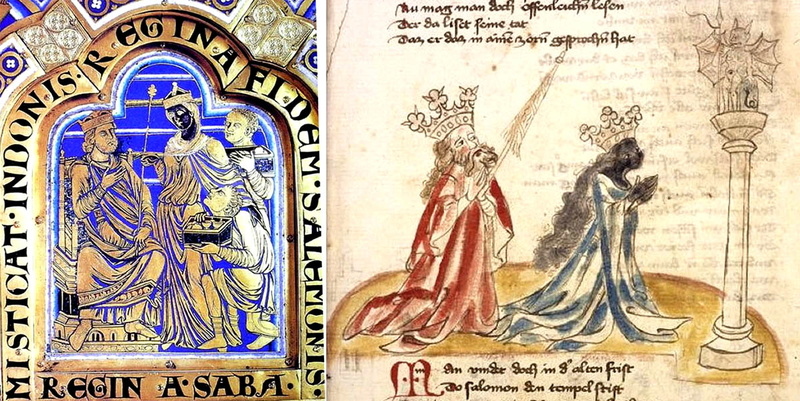 MISTICAT·INDONIS·REGINA FIDEM·SALEMONIS·
REGIN A·SABA·
Nu mag man doch offenleichn lesen
Der da liset seine tat
Daz er daz in aine zorn gesprochn hat
an vindt doch in d' alten frist
Do salomon den tempel stift